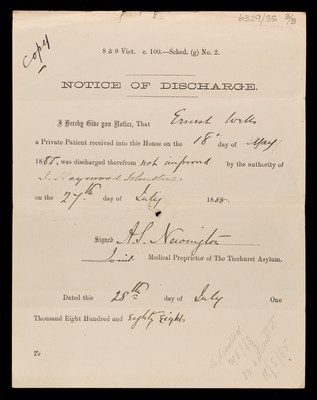 6329/35 3/8
Copy
8 & 9 Vict. c. 100.—Sched. (g) No. 2.
NOTICE OF DISCHARGE.
I Hereby Give you Notice, That Ernest Wills
a Private Patient received into this House on the 18th day of May
1888, was discharged therefrom not improved by the authority of
Haywood Johnstone
on the 27th day of July 1888.
Signed A. S. Newington
Joint Medical Proprietor of The Ticehurst Asylum.
Dated this 28th day of July One
Thousand Eight Hundred and Eighty Eight
To